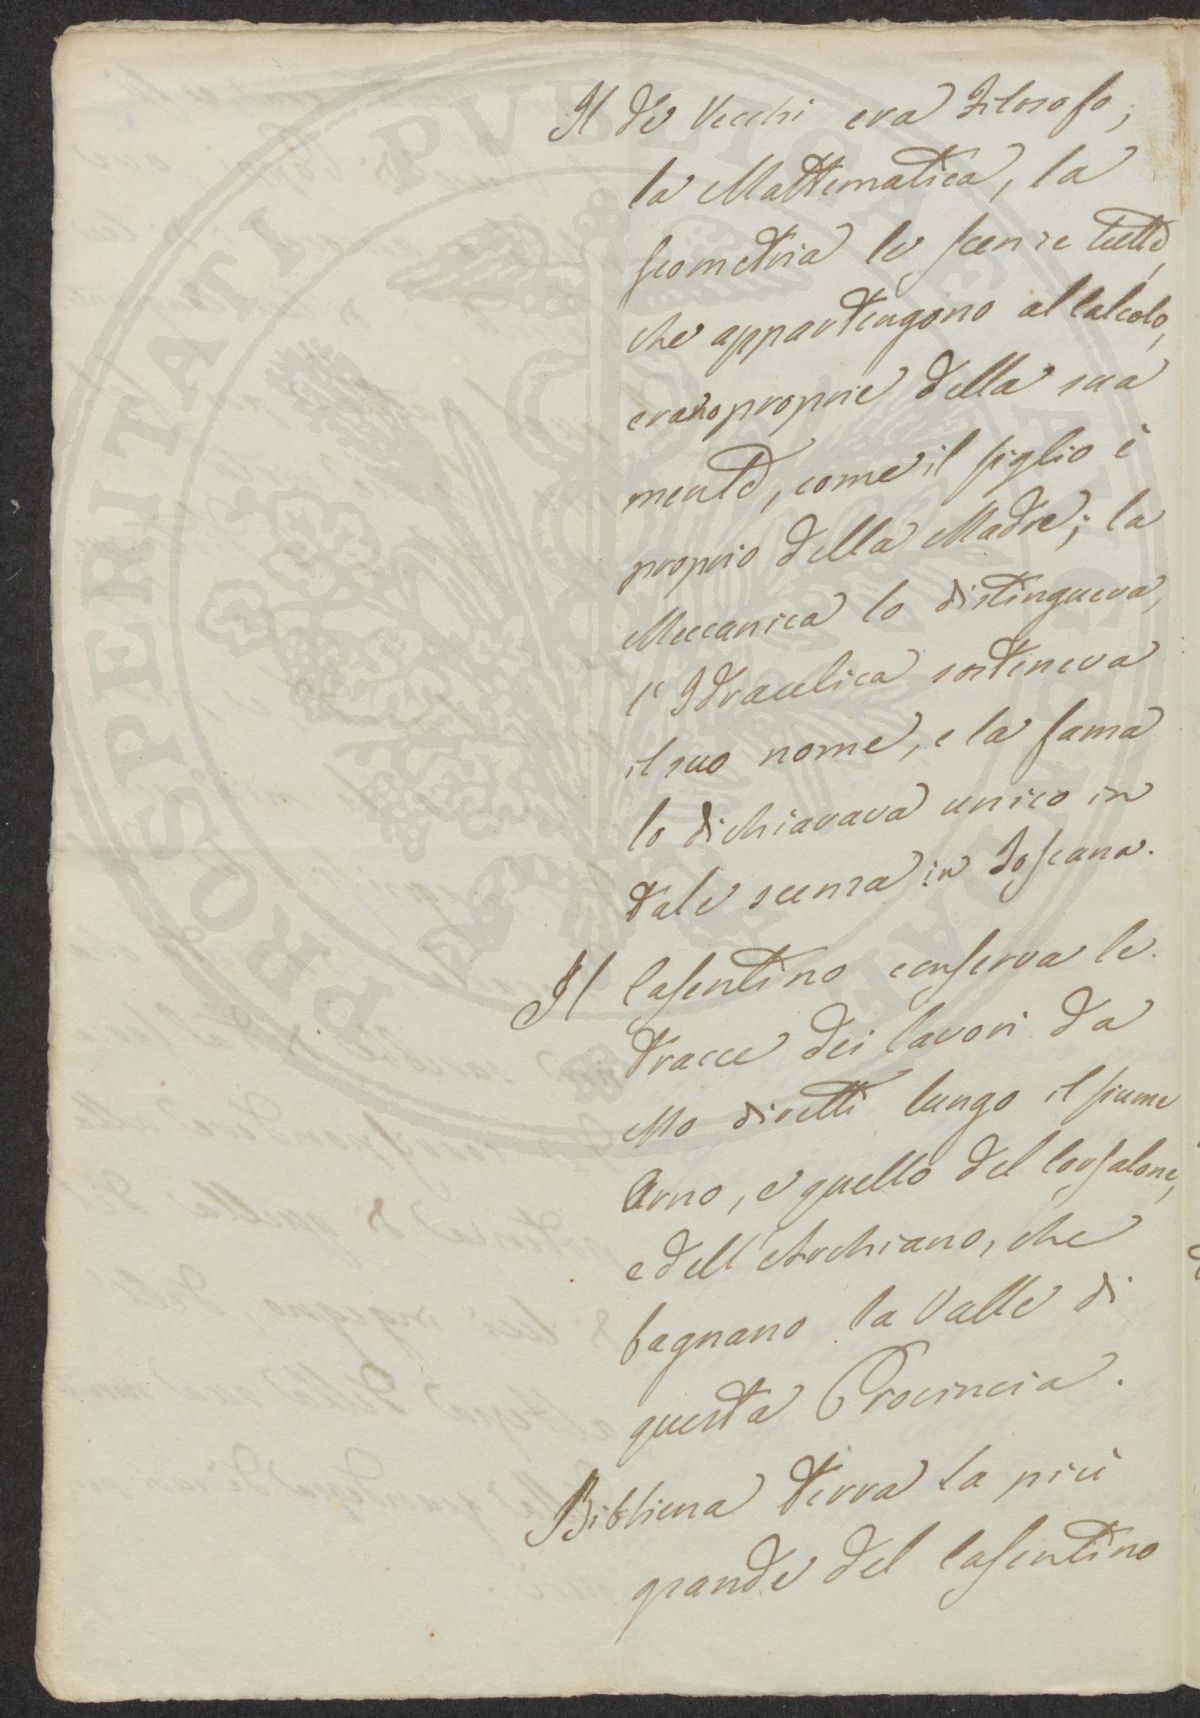 Il De Vecchi era Filosofo,
la Mattematica, la
Geometria le scenze tutte,
che appartengono al Calcolo,
erano proprie della sua
mente, come il figlio è
proprio della Madre; la
Meccanica lo distingueva,
l'Idraulica sosteneva
il suo nome, e la fama
lo dichiarava unico in
tale scenza in Toscana.
Il Casentino conserva le
tracce dei lavori da
Esso diretti lungo il fiume
Arno, e quello del Corsalone,
e dell'Archiano, che
bagnano la Valle di
questa Provincia.
Bibbiena terra la più
grande del Casentino
PROSPERITATI PVBLICAE